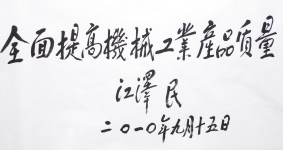 全面提高機械工業産品质量
江澤民
二〇一〇年九月十五日